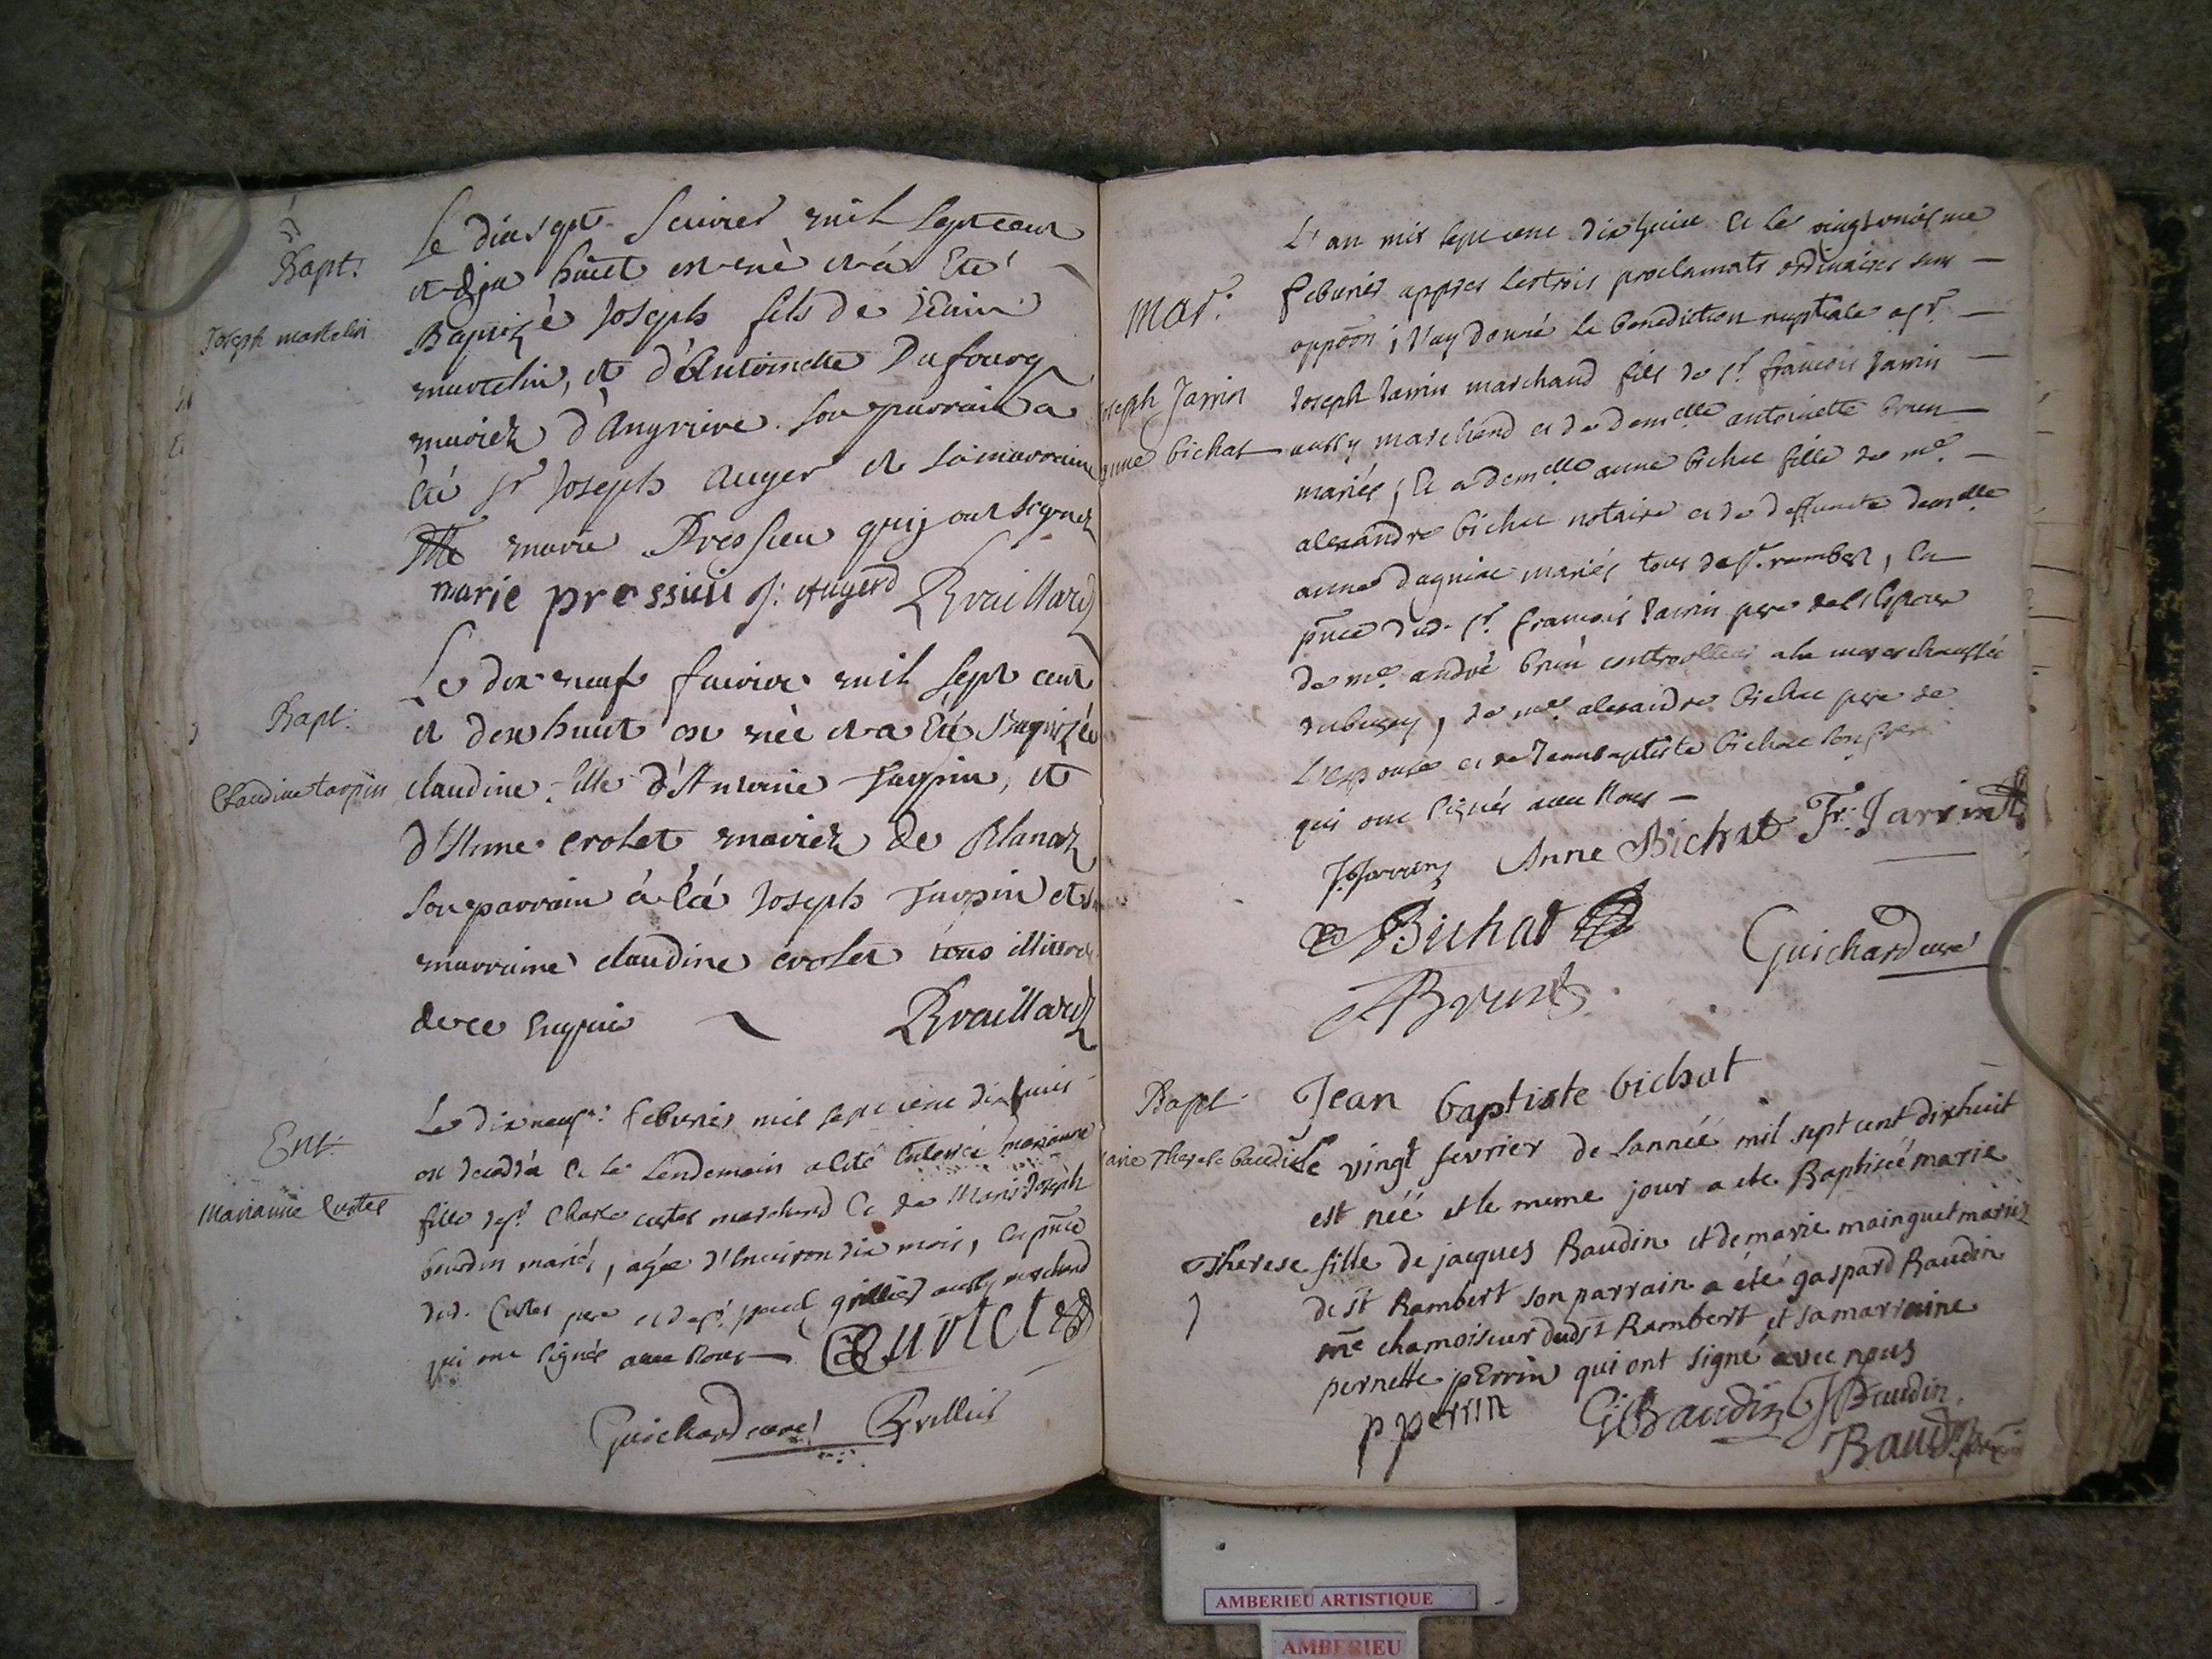 Bapt:
Joseph martelin
Le dix sept feuvrier mil sept cent
et dix huict est né et a été
Baptizé Joseph fils de
martelin, et d'Antoinette Dufourg
mariez d'Angrieve. son parrain a
été sr Joseph Auger et sa marraine
marie Pressieu quj ont signez
marie pressieu J: Augerd Braillard
Bapt:
Claudine tarpin
Le dix neuf feuvrier mil sept cent
et dix huict est née et a été Baptizée
claudine fille d'Antoine Tarpin, et
d'Anne crolet mariez de Blanaz
son parrain a été Joseph Tarpin et sa
marraine claudine crolet tous illitterez
de ce enquis Braillard
Ent:
Marianne Curtet
Le dix neufe. febvrier mil sept cent dix huit
est decedéé et le lendemain a eté enterréé marianne
fille de sr. Charle curtet marchand et de Marie Joseph
boudin mariés, agée d'environ dix mois, en pnce
dud. Curtet pere et de sr. grillied aussy marchand
qui ont signés avec Nous — Curtet
Guichard curé Grilliet
Mar.
Joseph Jarrin
anne bichat
L'an mil sept cent dix huit et le vingt uniesme
febvrier appres les trois proclamats ordinaires sans
oppoon; J'ay donné la benediction nuptiale a sr.
Joseph Jarrin marchand fils de sr. francois Jarrin
aussy marchand et de demelle antoinette brun
mariés, Et a demelle anne bichat fille de me.
alexandre bichat notaire et de deffunte demelle
anne dagniac mariés tous de st. rambert, En
pnce dud. sr. francois Jarrin pere de l'Espoux
de me. andré brun controlleur a la marechaussée
du bugey, de me. alexandre bichat pere de
L'espouse et de Jean baptiste bichat son frere
qui ont signés avec Nous —
J. Jarrin Anne Bichat Fr: Jarrin
Bichat
Guichard curé
A Brun
Jean baptiste bichat
Bapt.
marie Therese baudin
Le vingt fevrier de lannéé mil sept cent dixhuit
est néé et le meme jour a ete Baptiséé marie
Therese fille de jacques Baudin et de marie mainguet mariéz
de st Rambert son parrain a été gaspard Baudin
me chamoiseur dudst Rambert et sa marraine
pernette pErrin qui ont signé avec nous
p perrin G Baudin J Baudin
Baud
AMBERIEU ARTISTIQUE
AMBERIEU